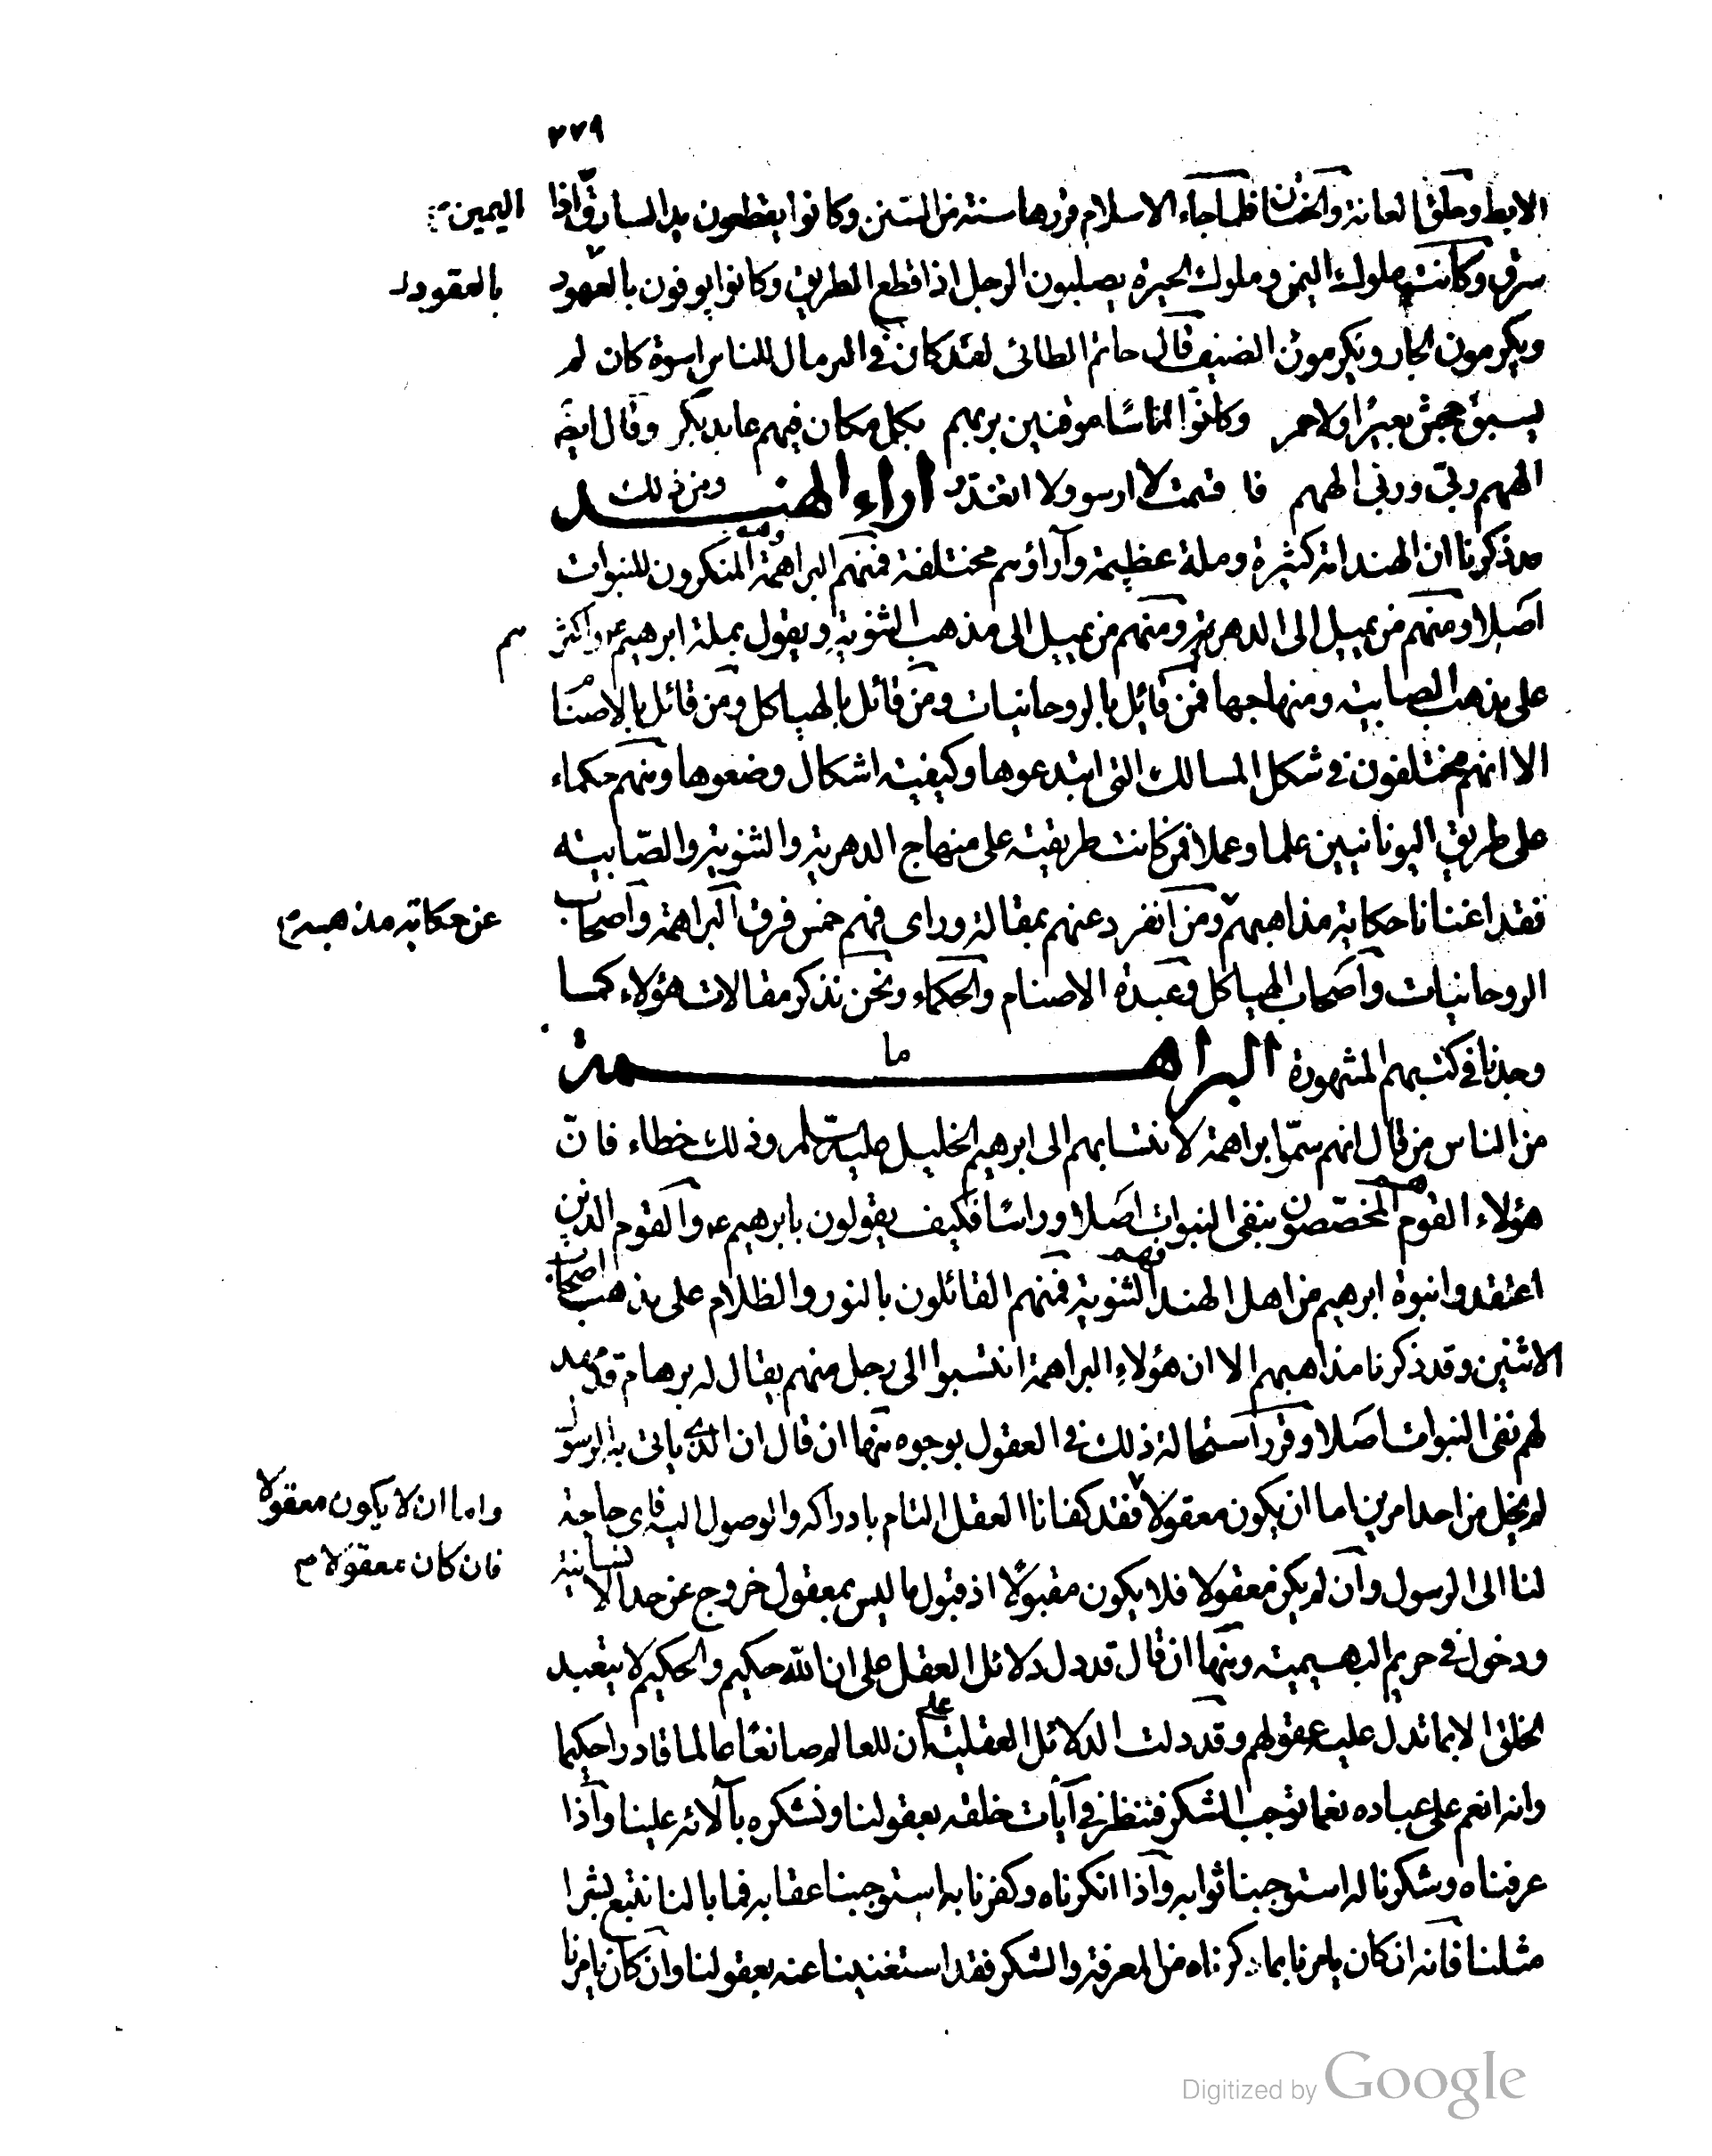 ٢٧٩
الابط وحلق العانة والختان فلما جاء الاسلام قررها سنة من السنن وكانوا يقطعون يد السارق اذا
اليمين
سرق وكانت ملوك اليمن وملوك الحيرة يصلبون الرجل اذا قطع الطريق وكانوا يوفون بالعهود
بالعقود
ويكرمون الجار ويكرمون الضيف قال حاتم الطائى لقد كان فى البرمال للناس اسوة كان لم
يسبق جحش بعير ولا حمر وكانوا اناسًا موقنين بربهم بكل مكان فيهم عابد بكر وقال ايضً
الههم ربى وربى الههم فا قتمت لا ارسو ولا اتغذر اراء الهنـــد ومن ذلك
قد ذكرنا ان الهند امة كثيرة وملة عظيمة وآراؤهم مختلفة فمنهم البراهمة وهم المنكرون للنبوات
اصلا ومنهم من يميل الى الدهرية ومنهم من يميل الى مذهب الثنوية ويقول بملة ابرهيم عم واكثر
هم
على مذهب الصابية ومنهاجها فمن قائل بالروحانيات ومن قائل بالهياكل ومن قائل بالاصنام
الا انهم مختلفون فى شكل المسالك التى ابتدعوها وكيفية اشكال وضعوها ومنهم حكماء
على طريق اليونانيين علما وعملا فمن كانت طريقته على منهاج الدهرية والثنوية والصابية
فقد اغنانا حكاية مذاهبهم ومن انفرد عنهم بمقالة وراى فهم خمس فرق البراهمة واصحاب
عن حكاية مذهبه م
الروحانيات واصحاب الهياكل وعبدة الاصنام والحكماء ونحن نذكر مقالات هؤلاء كما
وجدنا فى كتبهم المشهورة البراهـــمة
ما
من الناس من قال انهم سمّوا براهمة لانتسابهم الى ابرهيم الخليل عليه السلم وذلك خطاء فان
هؤلاء القوم هم المخصوصون بنفى النبوات اصلا وراسًا فكيف يقولون بابرهيم عم والقوم الذين
اعتقدوا نبوة ابرهيم من اهل الهند فهم الثنوية فمنهم القائلون بالنور والظلام على مذهب اصحاب
الاثنين وقد ذكرنا مذاهبهم الا ان هؤلاء البراهمة انتسبوا الى رجل منهم يقال له برهام قد مهد
لهم نفى النبوات اصلا وقرر استحالة ذلك فى العقول بوجوه منها ان قال ان الذى ياتى به الرسول
لم يخل من احد امرين اما ان يكون معقولا فقد كفانا العقل التام بادراكه والوصول اليه فاى حاجة
واما ان لا يكون معقولا
فان كان معقولا م
لنا الى الرسول وان لم يكن معقولا فلا يكون مقبولًا اذ قبول ما ليس بمعقول خروج عن حد الانسانية
ودخول فى حريم البهيمية ومنها ان قال قد دل دلائل العقل على ان الله حكيم والحكيم لا يتعبد
الخلق الا بما تدل عليه عقولهم وقد دلت الدلائل العقلية على ان للعالم صانعًا عالما قادرا حكيما
وانه انعم على عباده نعما توجب الشكر فننظر فى آيات خلقه بعقولنا ونشكره بآلائه علينا واذا
عرفناه وشكرنا له استوجبنا ثوابه واذا انكرناه وكفرنا به استوجبنا عقابه فما بالنا نتبع بشرا
مثلنا فانه ان كان يامرنا بما ذكرناه من المعرفة والشكر فقد استغنينا عنه بعقولنا وان كان يامرنا
Digitized by Google